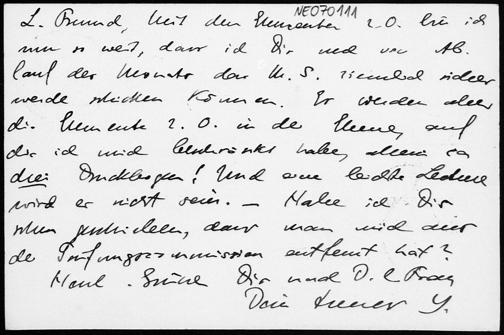 NE070111
L. Freund, Mit den Elementen 2. O. bin ich
nun so weit, dass ich Dir noch vor Ab-
lauf des Monats das M.S. ziemlich sicher
werde schicken können. Es werden aber
die Elemente 2. O. in der Ebene, auf
die ich mich beschränkt habe, allein ca
drei Druckbogen! Und eine leichte Lektüre
wird es nicht sein. — Habe ich Dir
schon geschrieben, dass man mich aus
der Prüfungskommission entfernt hat?
Herzl. Grüsse Dir und D. l. Frau
Dein